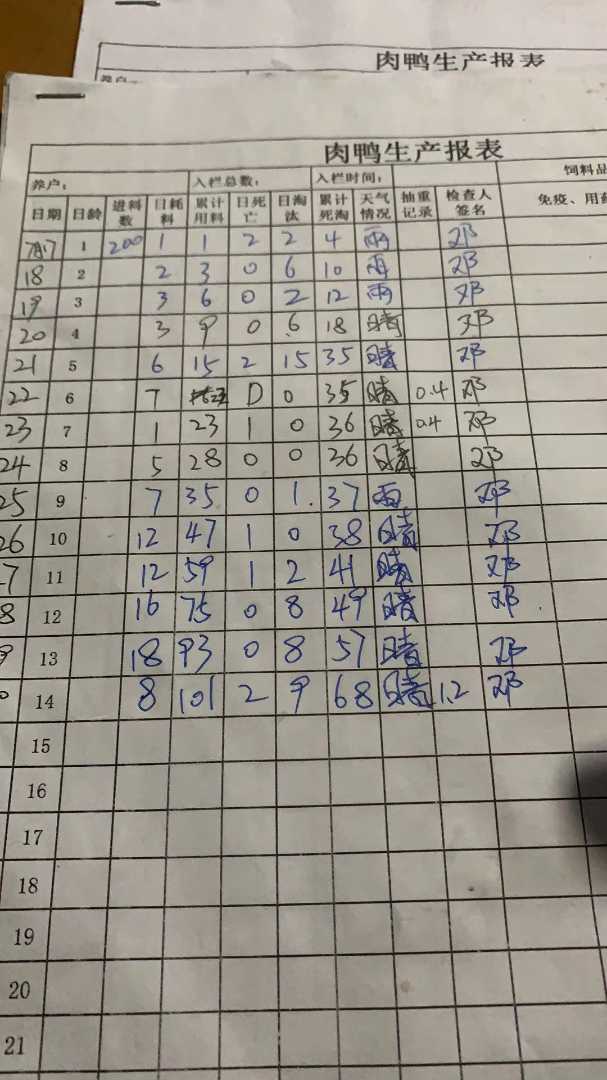 肉鸭生产报表
养户
肉鸭生产报表
养户: 入栏总数: 入栏时间: 饲料品
日期 日龄 进料数 日耗料 累计用料 日死亡 日淘汰 累计死淘 天气情况 抽重记录 检查人签名 免疫、用药
1 200 1 1 2 2 4 雨 邓
18 2 2 3 0 6 10 雨 邓
19 3 3 6 0 2 12 雨 邓
20 4 3 9 0 6 18 晴 邓
21 5 6 15 2 15 35 晴 邓
22 6 7 0 0 35 晴 0.4 邓
23 7 1 23 1 0 36 晴 0.4 邓
24 8 5 28 0 0 36 晴 邓
25 9 7 35 0 1. 37 雨 邓
26 10 12 47 1 0 38 晴 邓
27 11 12 59 1 2 41 晴 邓
8 12 16 75 0 8 49 晴 邓
9 13 18 93 0 8 57 晴 邓
0 14 8 101 2 9 68 晴 1.2 邓
15
16
17
18
19
20
21